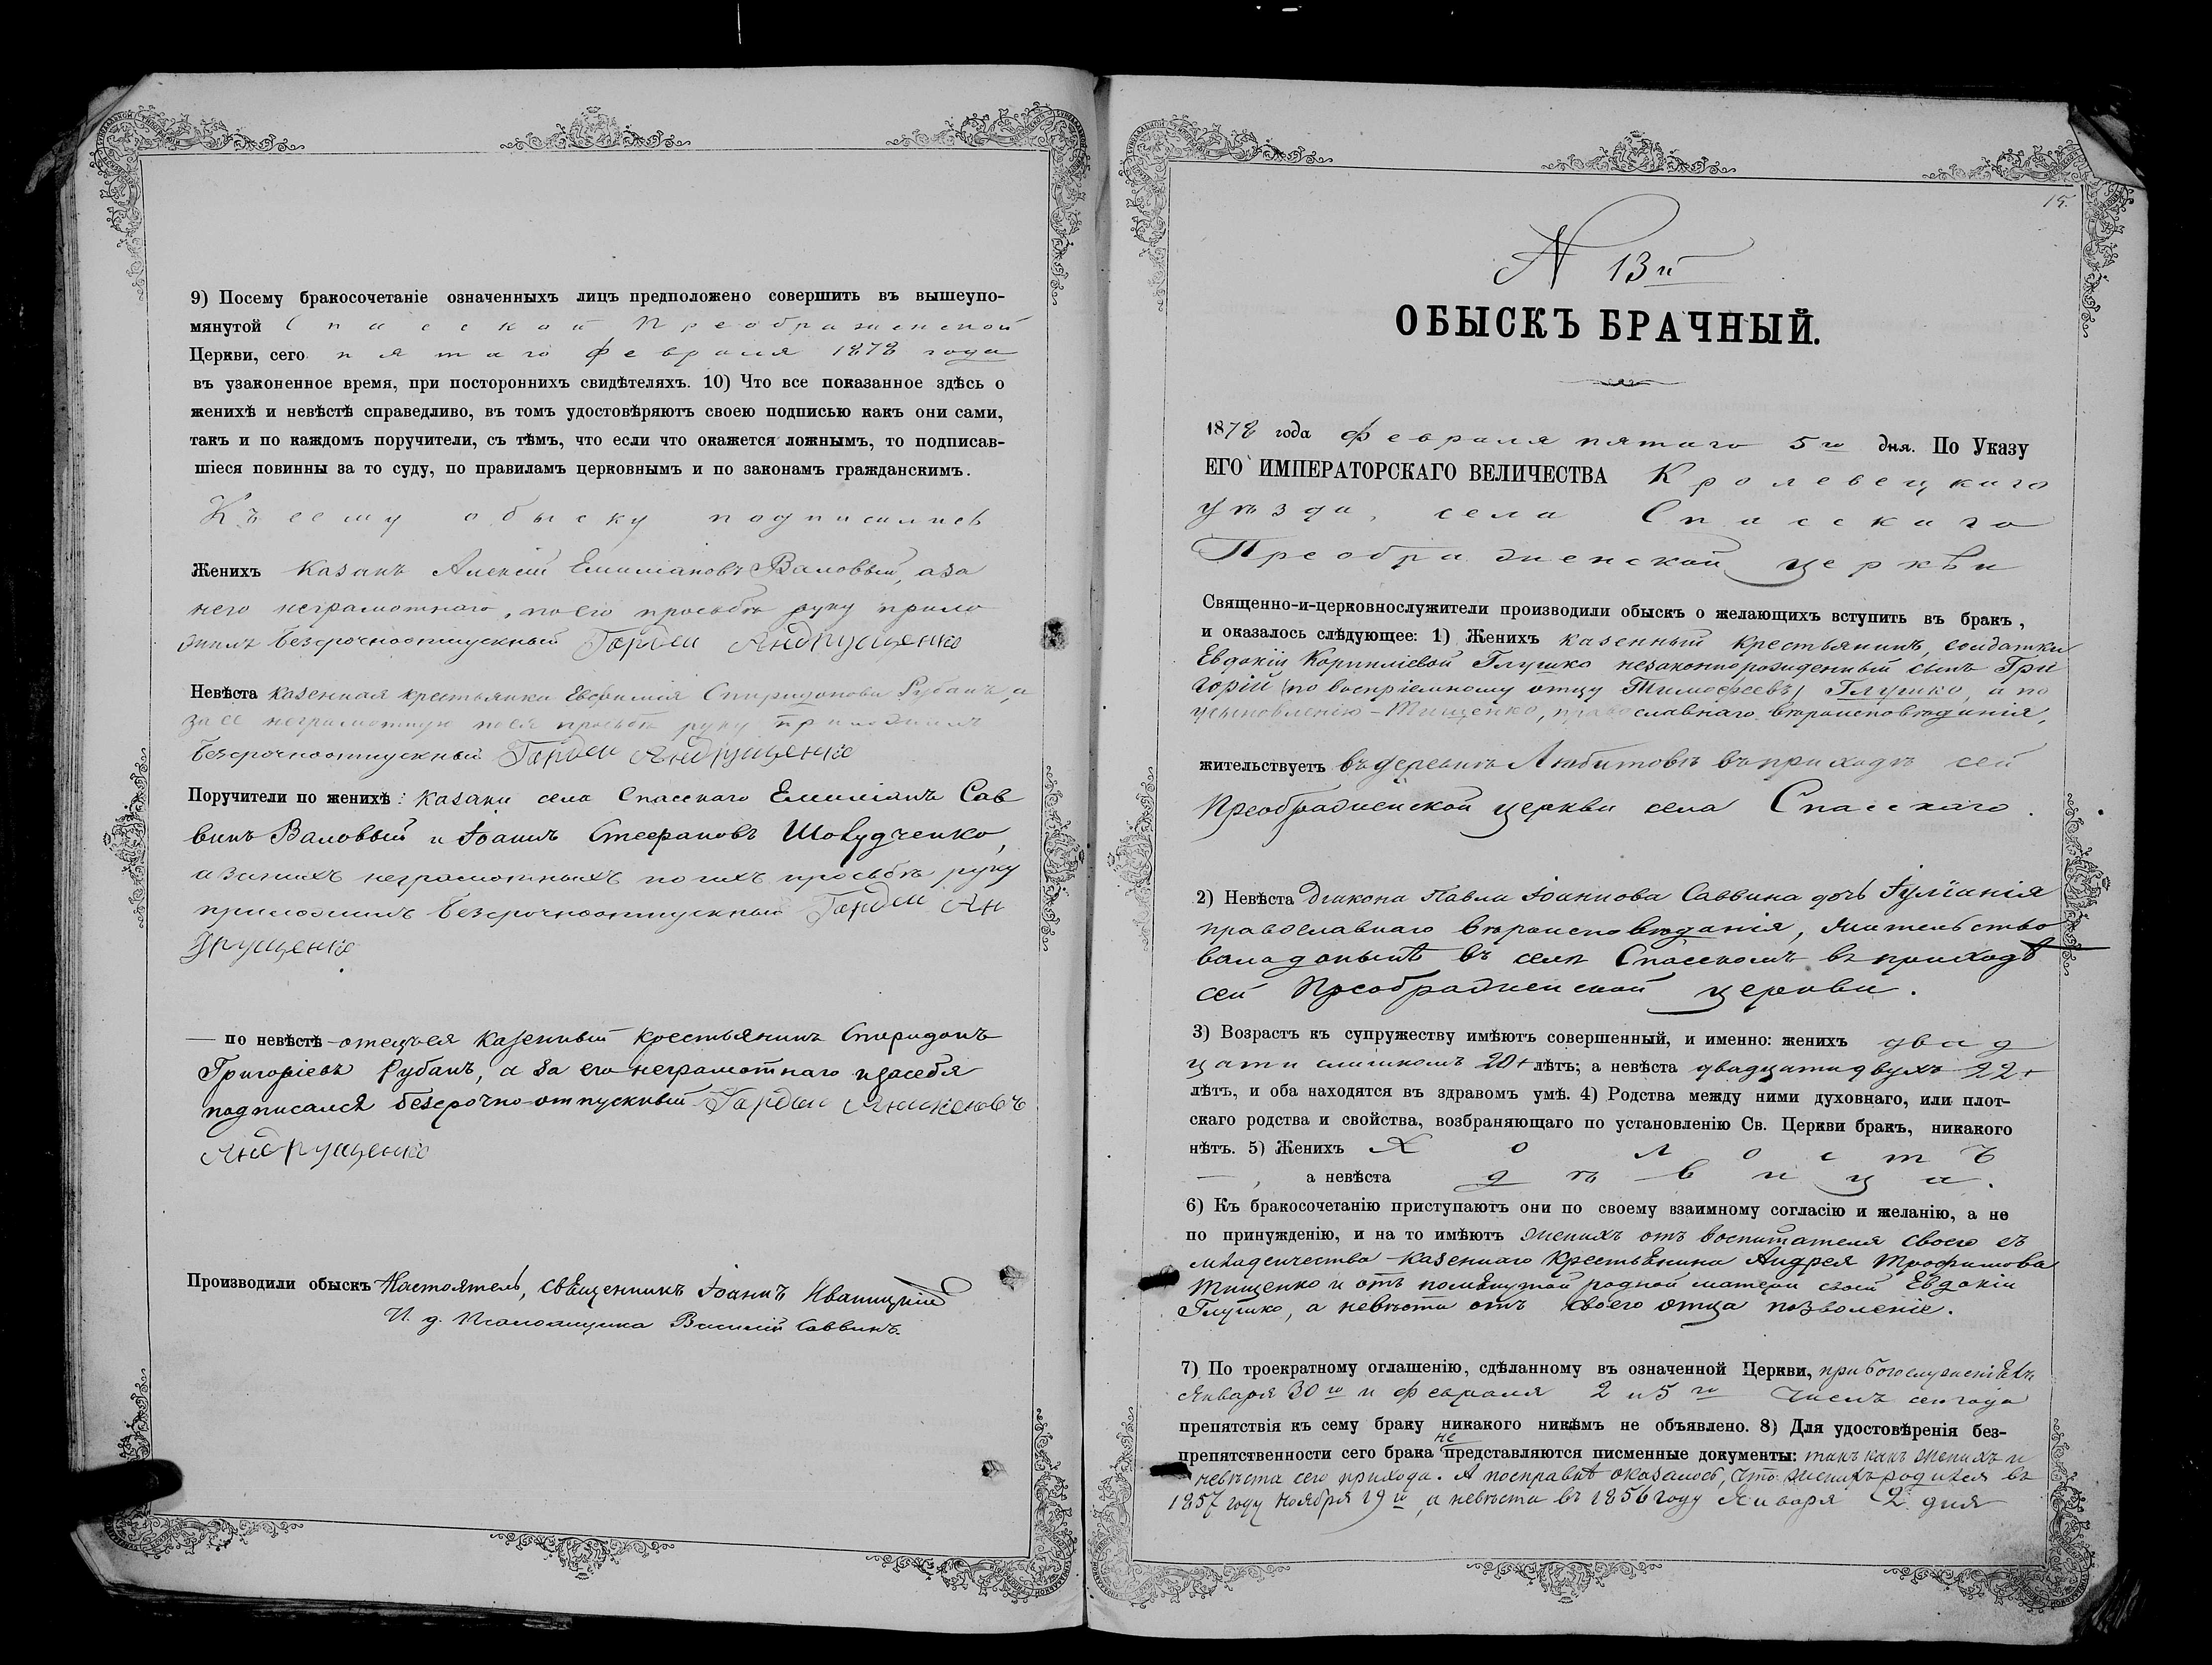 9) Посему бракосочетаніе означенныхъ лицъ предположено совершить въ вышеупо-
мянутой Спасской Преображенской
Церкви, сего пятаго февраля 1878 года
въ узаконенное время, при постороннихъ свидѣтеляхъ. 10) Что все показанное здѣсь о
женихѣ и невѣстѣ справедливо, въ томъ удостовѣряютъ своею подписью какъ они сами,
такъ и по каждомъ поручители, съ тѣмъ, что если что окажется ложнымъ, то подписав-
шіеся повинны за то суду, по правиламъ церковнымъ и по законамъ гражданскимъ.
Къ сему обыску подписались
Женихъ казакъ Алексій Емиліановъ Валовый, а за
него неграмотнаго, по его просьбѣ руку прило
жилъ безсрочноотпускный Гордій Андрущенко
Невѣста казенная крестьянка Евфимія Спиридонова Рубанъ, а
за ее неграмотную по ея просьбѣ руку приложилъ
безсрочноотпускный Гордій Андрущенко
Поручители по женихѣ: казаки села Спасскаго Емиліанъ Сав
винъ Валовый и Іоаннъ Стефановъ Шовудченко,
а за нихъ неграмотныхъ по ихъ просьбѣ руку
приложилъ безсрочноотпускный Гордій Ан
друщенко
— по невѣстѣ - отецъ ея казенный крестьянинъ Спиридонъ
Григоріевъ Рубанъ, а за его неграмотнаго и за себя
подписался безсрочно-отпускный Гордій
Андрущенко
Производили обыскъ Настоятель, священникъ Іоаннъ Иваницкій
И. д. Псаломщика Василій Саввинъ.
15.
N 13й
ОБЫСКЪ БРАЧНЫЙ.
1878 года февраля пятаго 5го дня. По Указу
ЕГО ИМПЕРАТОРСКАГО ВЕЛИЧЕСТВА Кролевецкаго
уѣзда, села Спасскаго
Преображенской церкви
Священно-и-церковнослужители производили обыскъ о желающихъ вступить въ бракъ,
и оказалось слѣдующее: 1) Женихъ казенный крестьянинъ, солдатки
Евдокіи Корниліевой Глушко незаконнорожденный сынъ Гри
горій (по воспріемному отцу Тимофеевъ) Глушко, а по
усыновленію - Тищенко, православнаго вѣроисповѣданія,
жительствуетъ въ деревнѣ Любитовѣ въ приходѣ сей
Преображенской церкви села Спасскаго.
2) Невѣста діакона Павла Іоаннова Саввина дочь Іуліанія
православнаго вѣроисповѣданія, жительство
въ селѣ Спасскомъ въ приходѣ
сей Преображенской церкви.
3) Возрастъ къ супружеству имѣютъ совершенный, и именно: женихъ двад
цати слишкомъ 20+ лѣтъ; а невѣста двадцати двухъ 22+
лѣтъ, и оба находятся въ здравомъ умѣ. 4) Родства между ними духовнаго, или плот-
скаго родства и свойства, возбраняющаго по установленію Св. Церкви бракъ, никакого
нѣтъ. 5) Женихъ Холостъ
—, а невѣста дѣвица.
6) Къ бракосочетанію приступаютъ они по своему взаимному согласію и желанію, а не
по принужденію, и на то имѣютъ женихъ отъ воспитателя своего съ
младенчества - казеннаго крестьянина Андрея Трофимова
Тищенко и отъ помянутой родной матери своей Евдокіи
Глушко, а невѣста отъ своего отца позволеніе.
7) По троекратному оглашенію, сдѣланному въ означенной Церкви, при богослуженіяхъ
Января 30го и февраля 2 и 5го чиселъ сего года
препятствія къ сему браку никакого никѣмъ не объявлено. 8) Для удостовѣренія без-
препятственности сего брака не представляются писменные документы: такъ какъ женихъ и
невѣста сего прихода. А по справкѣ оказалось, что женихъ родился въ
1857 году Ноября 19го, а невѣста въ 1856 году Января 2 дня